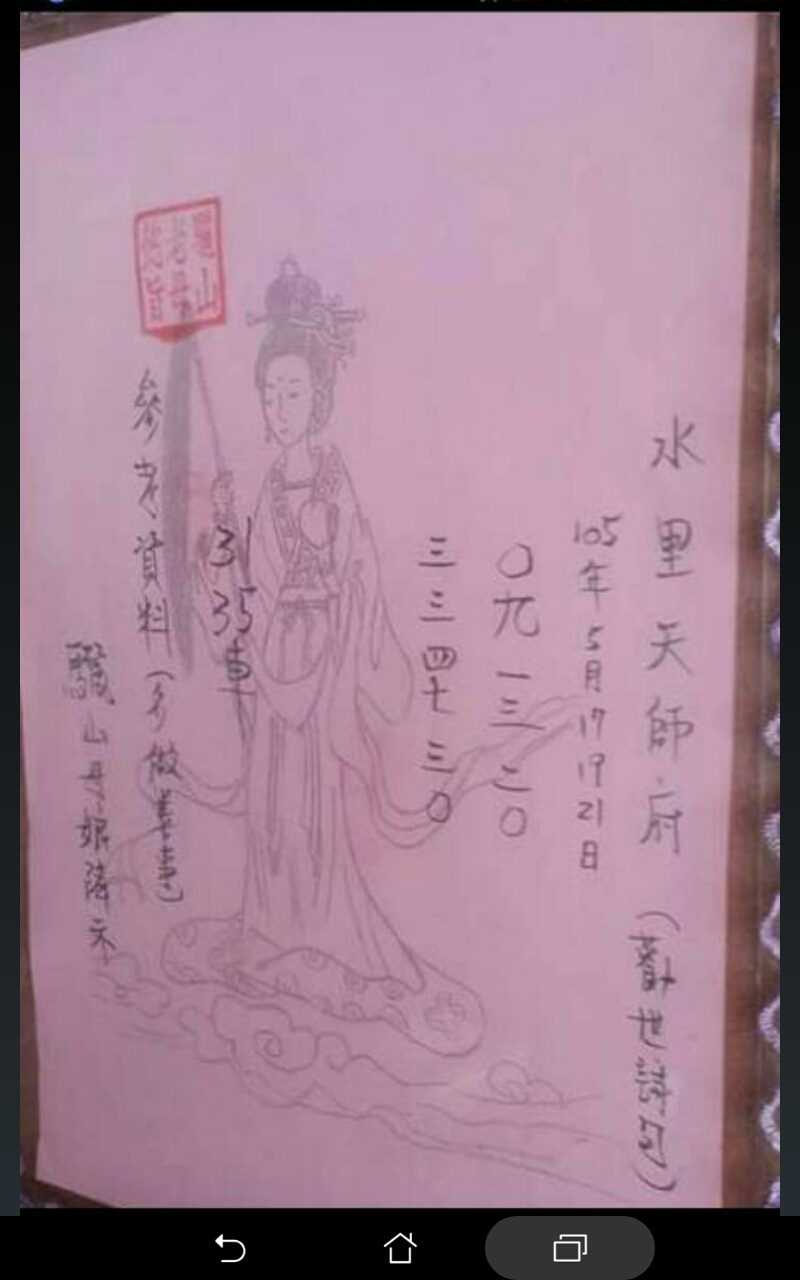 水里天師府(勸世詩句)
105年5月17 19 21日
〇九一三二〇
三三四七三〇
31 35車
參考資料(多做善事)
驪山母娘降示
驪山
老母
懿旨